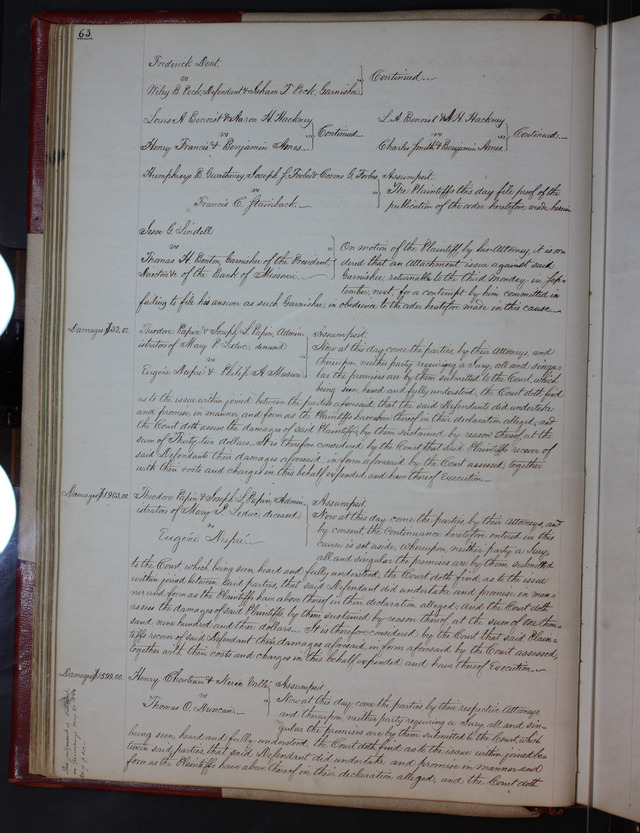 63.
Frederick Dent
vs
Wiley B. Peck, Defendant & Isham T. Peck, Garnishee
Continued.
Louis A Benoist & Aaron H. Hackney
vs
Henry Francis & Benjamin Ames
Continued
L. A. Benoist & A H. Hackney
vs
Charles Smith & Benjamin Ames
Continued
Humphreys B. Joseph J. Forbes & Cosmo G. Forbes
vs
Francis C. Stainback
Assumpsit.
The Plaintiffs this day file proof of the
publication of the order heretofore made herein
Jesse G. Lindell
vs
Thomas H. Benton, Garnishee of the President
Directors &c of the Bank of Missouri
On motion of the Plaintiff by his Attorney, it is or-
dered that an Attachment issue against said
Garnishee, returnable to the third Monday in Sep-
tember, next, for a contempt by him committed in
failing to file his answer as such Garnishee, in obedience to the order heretofore made in this cause.
Damages $32.00.
Theodore Papin & Joseph L. Papin, Admin-
istrators of Mary P. Leduc, deceased
vs
Eugene Dupré & Philip A.
Assumpsit.
Now at this day come the parties, by their Attorneys, and
thereupon neither party requiring a Jury, all and singu-
lar the premises are by them submitted to the Court, which
being seen, heard and fully understood, the Court doth find
as to the issue within joined between the parties aforesaid, that the said Defendants did undertake
and promise, in manner and form as the Plaintiffs have above thereof in their declaration alleged; and
the Court doth assess the damages of said Plaintiffs, by them sustained by reason thereof, at the
sum of Thirty two dollars. It is therefore considered by the Court that said Plaintiffs recover of
said Defendants their damages aforesaid, in form aforesaid by the Court assessed, together
with their costs and charges in this behalf expended, and have thereof Execution.
Damages $1903.00.
Theodore Papin & Joseph L. Papin, Admin-
istrators of Mary P. Leduc, deceased
vs
Eugene Dupré
Assumpsit.
Now at this day come the parties by their Attorneys, and
by consent, the continuance heretofore entered in this
cause is set aside, whereupon, neither party a Jury,
all and singular the premises are by them submitted
to the Court which being seen, heard and fully understood, the Court doth find, as to the issue
within joined between said parties, that said Defendant did undertake and promise in man-
ner and form as the Plaintiffs have above thereof in their declaration alleged, and the Court doth
assess the damages of said Plaintiffs by them sustained by reason thereof at the sum of One thou-
sand, nine hundred and three dollars. It is therefore considered by the Court that said Plain-
tiffs recover of said Defendant their damages aforesaid, in form aforesaid by the Court assessed,
together with their costs and charges in this behalf expended and have thereof Execution.
Damages $599.00.
Henry Chouteau & Neree Valle
vs
Thomas O. Duncan
Assumpsit
Now at this day, come the parties, by their respective Attorneys
and thereupon neither party requiring a Jury, all and sin-
gular the premises are by them submitted to the Court, which
being seen, heard and fully understood, the Court doth find as to the issue within joined be-
tween said parties, that said Defendant did undertake and promise in manner and
form as the Plaintiffs have above thereof in their declaration alleged, and the Court doth